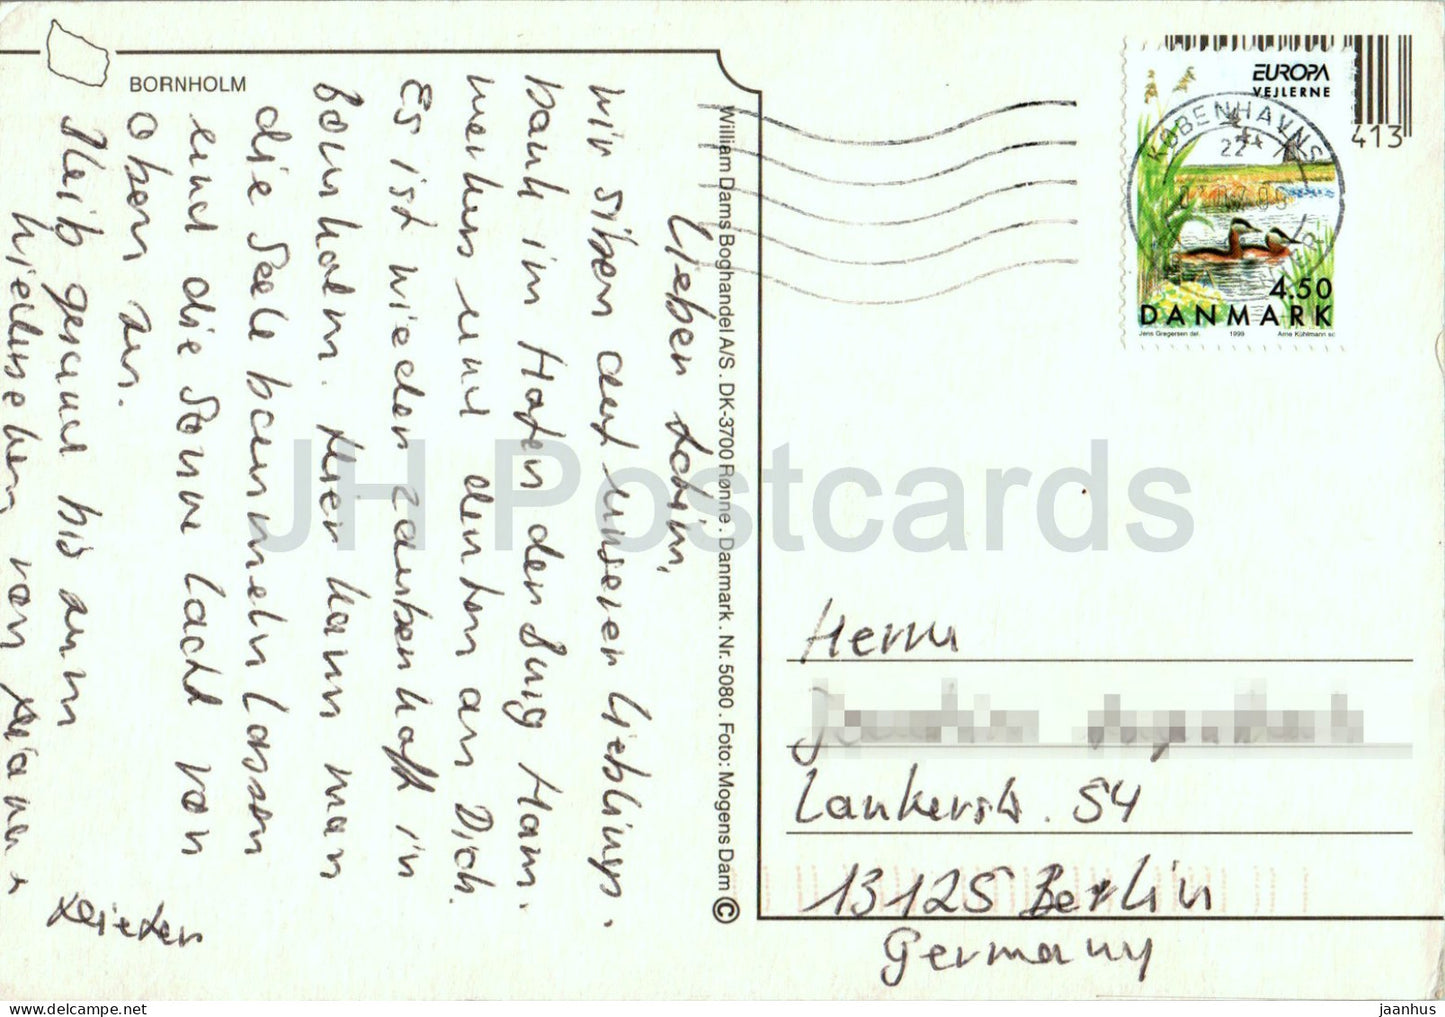 BORNHOLM
Lieber Achim,
wir sitzen auf unserer Lieblings-
bank im Hafen der Burg Ham-
mershus und denken an Dich.
Es ist wieder zauberhaft in
Bornholm. Hier kann man
die Seele baumeln lassen
und die Sonne lacht von
oben zu.
Bleib gesund bis zum
Wiedersehen von
Dieter
William Dams Boghandel A/S . DK-3700 Rønne . Danmark . Nr. 5080 . Foto: Mogens Dam ©
EUROPA
VEJLERNE
413
KØBENHAVNS
22
4.50
DANMARK
Jens Gregersen del. 1999 Arne Kühlmann sc
Herrn
Lankerstr. 54
13125 Berlin
Germany
JH Postcards
jaanhus